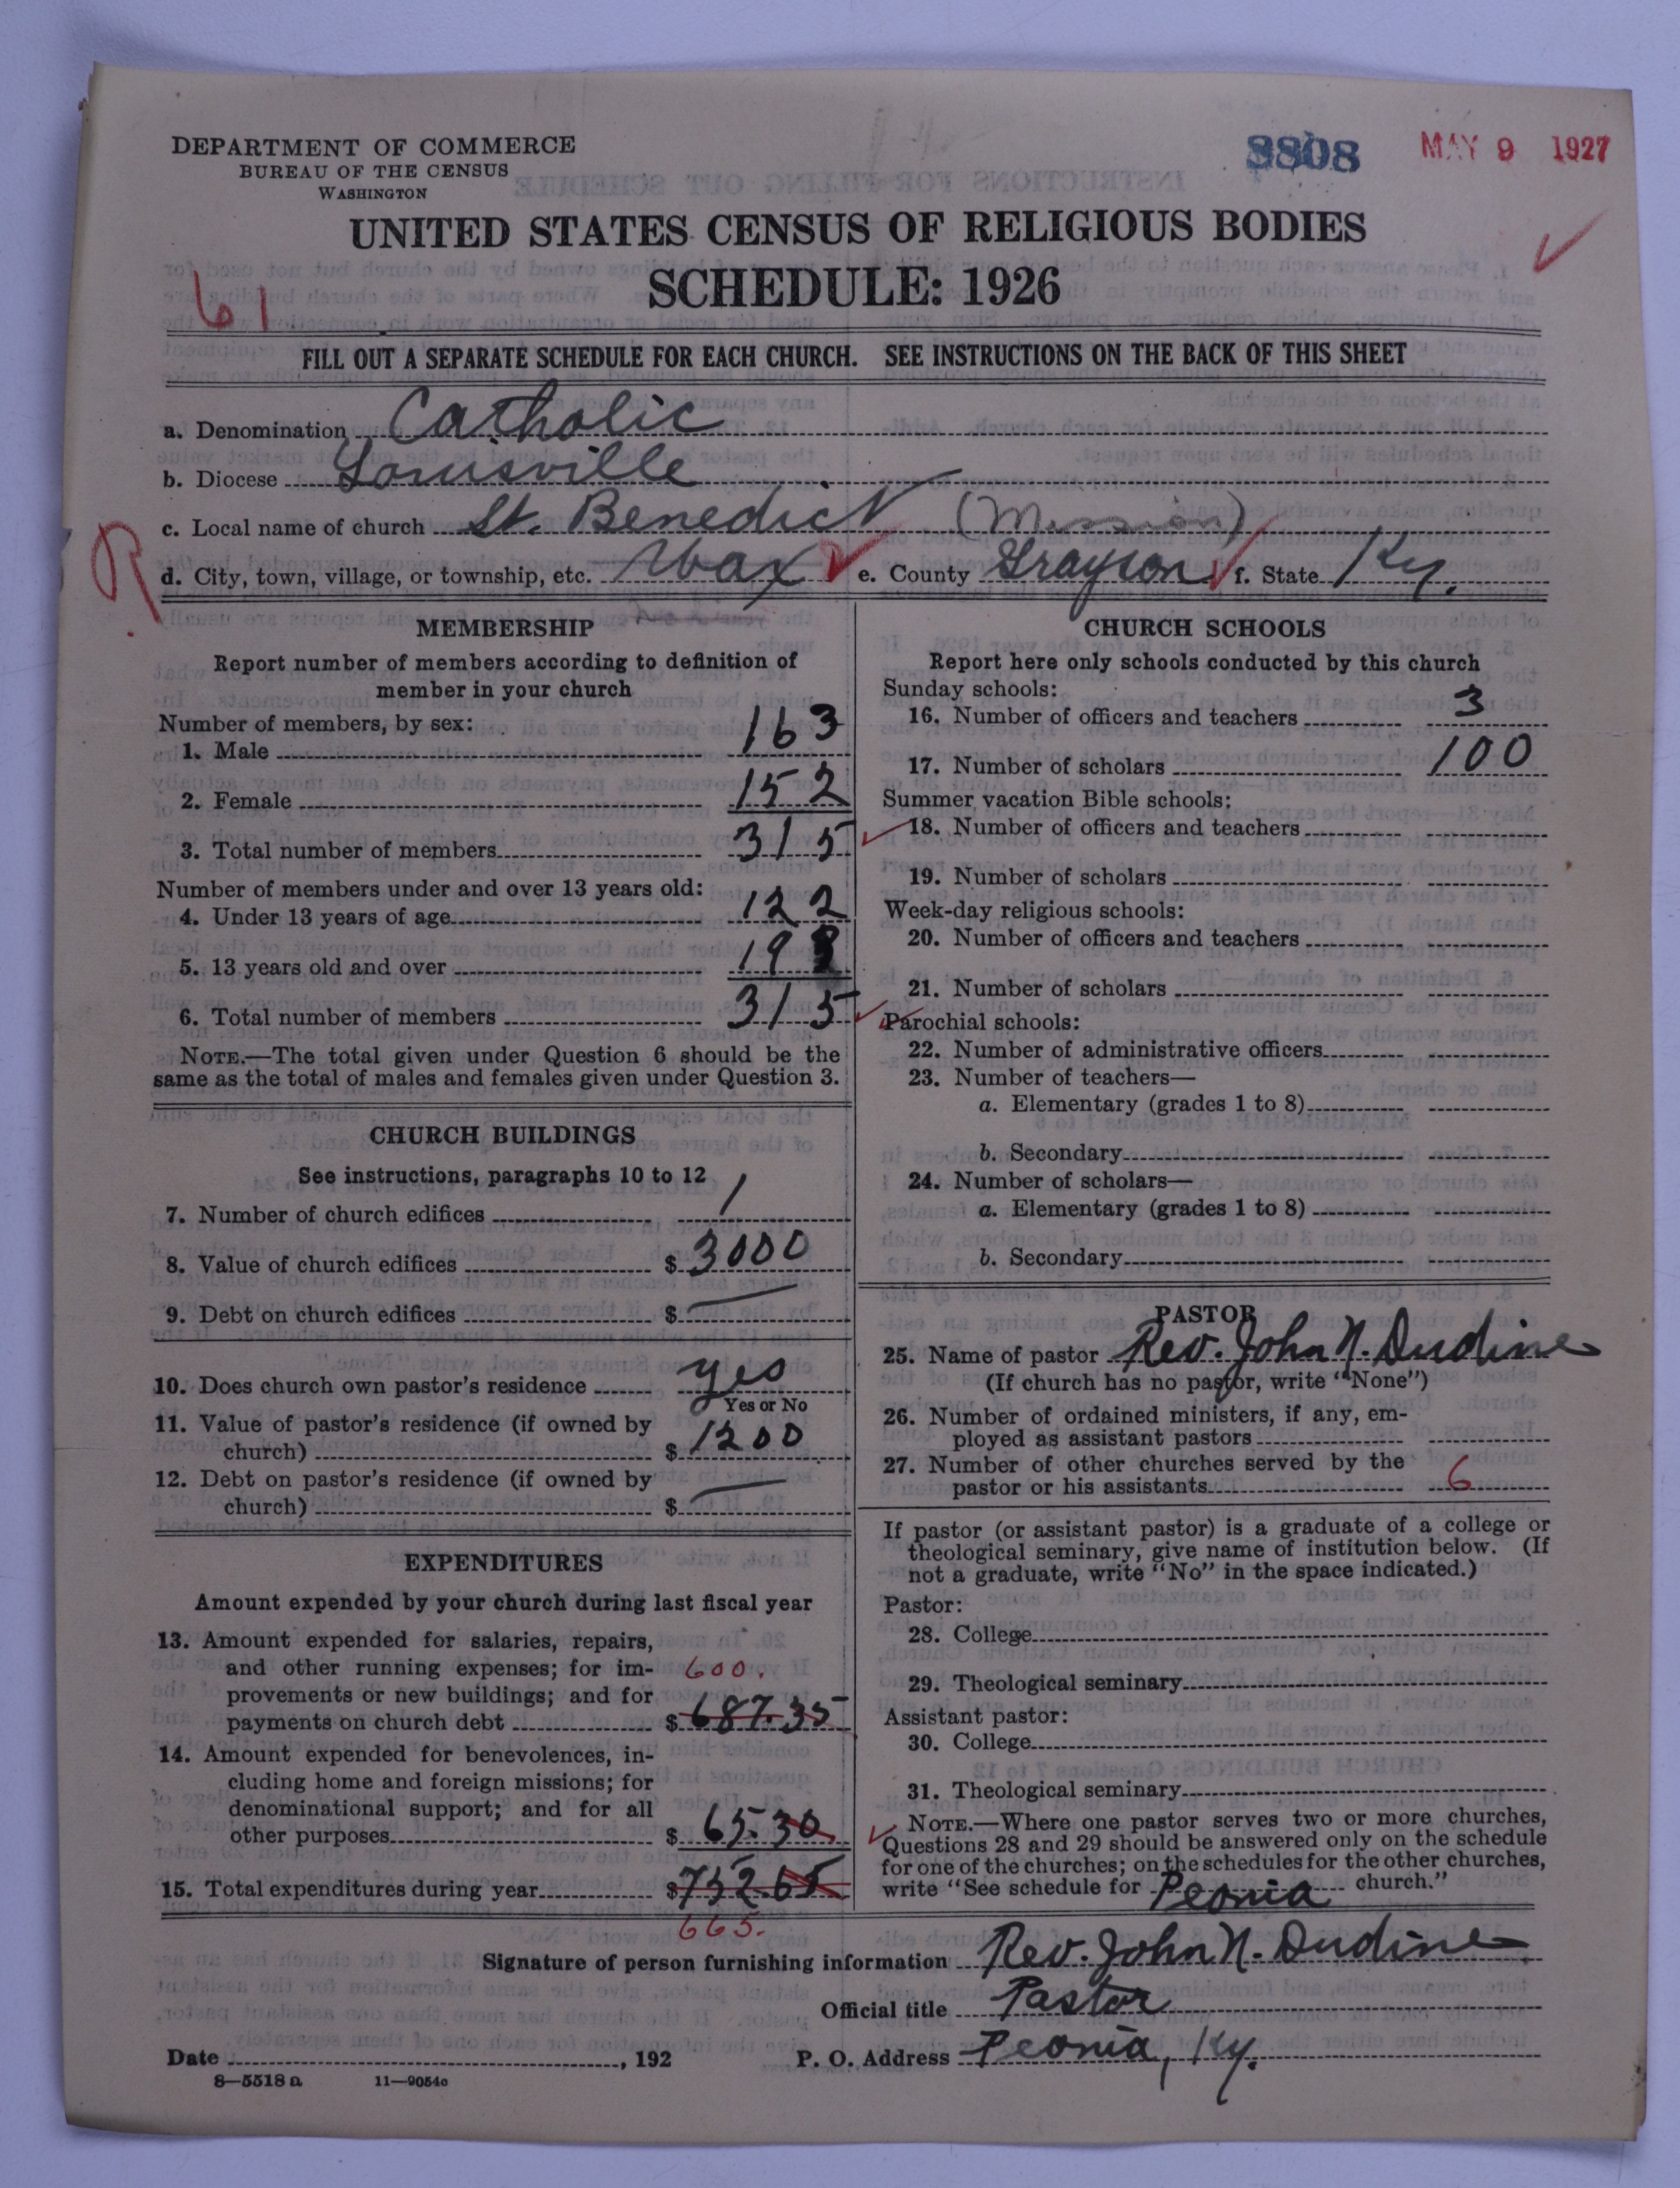 DEPARTMENT OF COMMERCE
BUREAU OF THE CENSUS
WASHINGTON
3808
MAY 9 1927
UNITED STATES CENSUS OF RELIGIOUS BODIES
SCHEDULE: 1926
61
FILL OUT A SEPARATE SCHEDULE FOR EACH CHURCH. SEE INSTRUCTIONS ON THE BACK OF THIS SHEET
a. Denomination Catholic
b. Diocese Louisville
c. Local name of church St. Benedict (Mission)
R
d. City, town, village, or township, etc. Wax e. County Grayson f. State Ky.
MEMBERSHIP
Report number of members according to definition of
member in your church
Number of members, by sex:
1. Male 163
2. Female 152
3. Total number of members 315
Number of members under and over 13 years old:
4. Under 13 years of age 122
5. 13 years old and over 193
6. Total number of members 315
NOTE.—The total given under Question 6 should be the
same as the total of males and females given under Question 3.
CHURCH BUILDINGS
See instructions, paragraphs 10 to 12
7. Number of church edifices 1
8. Value of church edifices $ 3000
9. Debt on church edifices $ —
10. Does church own pastor's residence yes
Yes or No
11. Value of pastor's residence (if owned by
church) $ 1200
12. Debt on pastor's residence (if owned by
church) $ —
EXPENDITURES
Amount expended by your church during last fiscal year
13. Amount expended for salaries, repairs,
and other running expenses; for im- 600.
provements or new buildings; and for
payments on church debt $ 687.35
14. Amount expended for benevolences, in-
cluding home and foreign missions; for
denominational support; and for all
other purposes $ 65.30
15. Total expenditures during year $ 752.65
665.
CHURCH SCHOOLS
Report here only schools conducted by this church
Sunday schools:
16. Number of officers and teachers 3
17. Number of scholars 100
Summer vacation Bible schools:
18. Number of officers and teachers
19. Number of scholars
Week-day religious schools:
20. Number of officers and teachers
21. Number of scholars
Parochial schools:
22. Number of administrative officers
23. Number of teachers—
a. Elementary (grades 1 to 8)
b. Secondary
24. Number of scholars—
a. Elementary (grades 1 to 8)
b. Secondary
PASTOR
25. Name of pastor Rev. John N. Dudine
(If church has no pastor, write "None")
26. Number of ordained ministers, if any, em-
ployed as assistant pastors
27. Number of other churches served by the
pastor or his assistants 6
If pastor (or assistant pastor) is a graduate of a college or
theological seminary, give name of institution below. (If
not a graduate, write "No" in the space indicated.)
Pastor:
28. College
29. Theological seminary
Assistant pastor:
30. College
31. Theological seminary
NOTE.—Where one pastor serves two or more churches,
Questions 28 and 29 should be answered only on the schedule
for one of the churches; on the schedules for the other churches,
write "See schedule for Peonia church."
Signature of person furnishing information Rev. John N. Dudine
Official title Pastor
Date , 192 P. O. Address Peonia, Ky.
8—5518 a 11—9054o